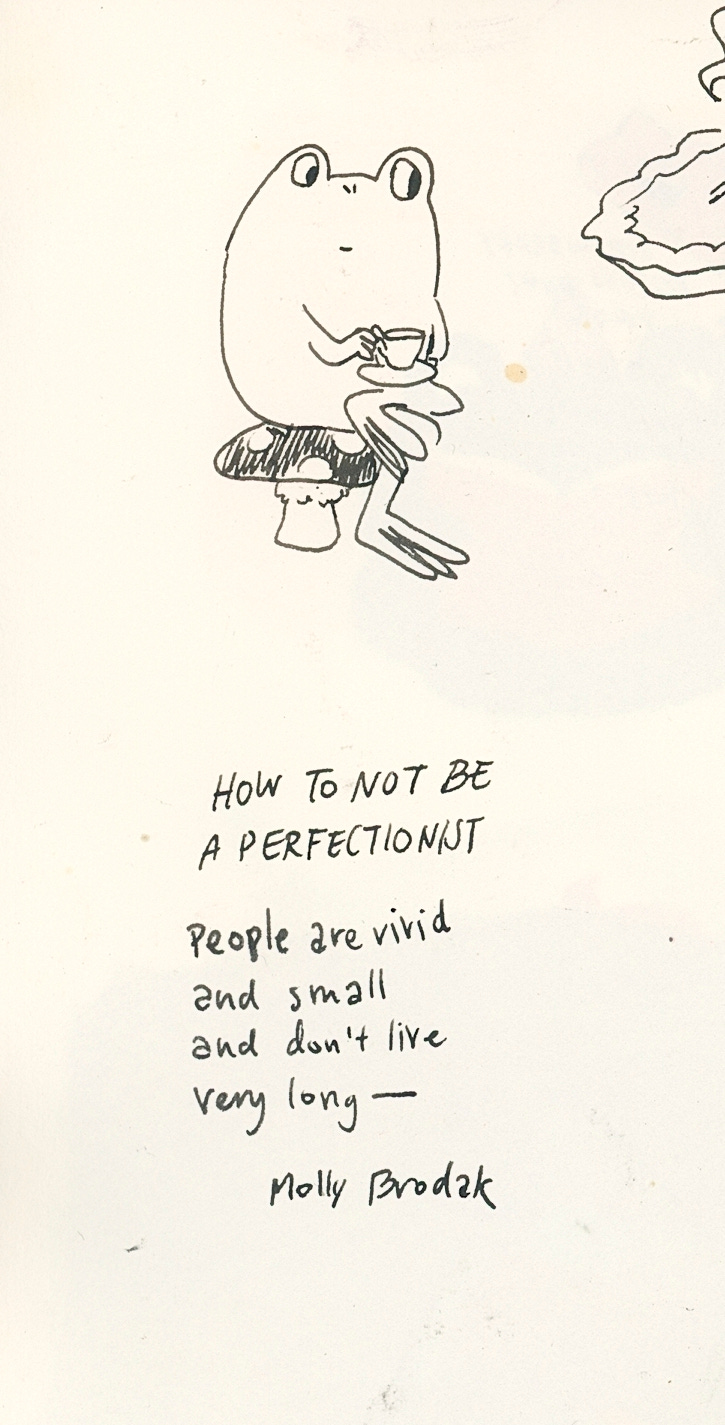 HOW TO NOT BE
A PERFECTIONIST
People are vivid
and small
and don't live
very long —
Molly Brodak